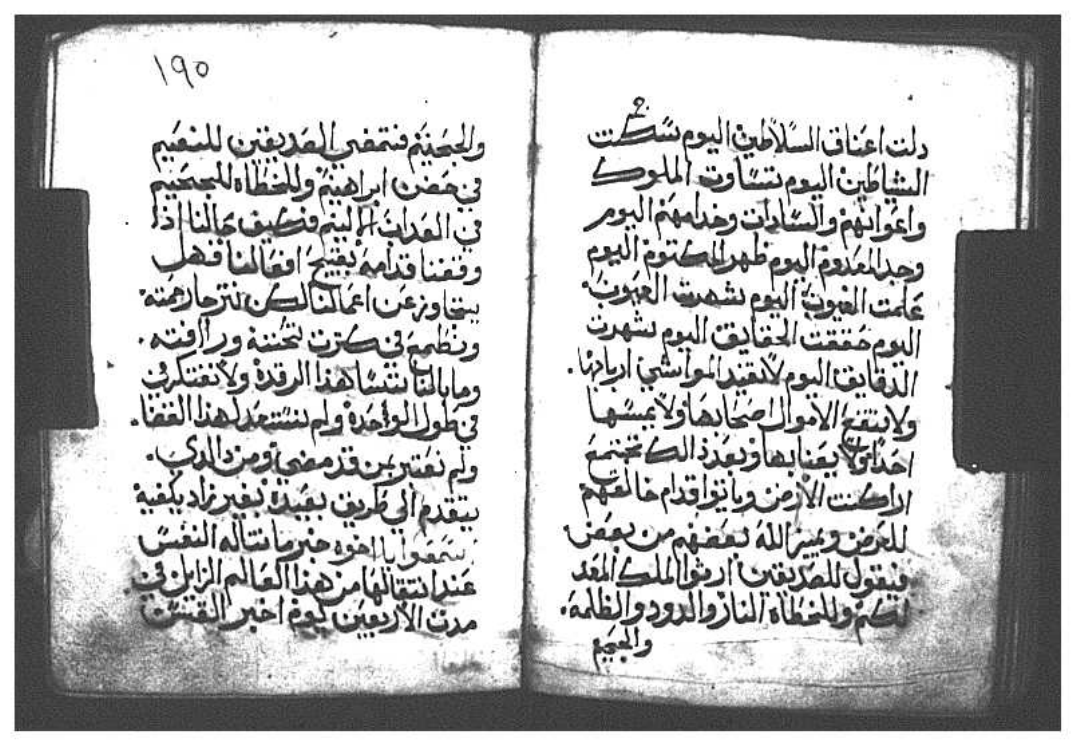 دلت اعناق السلاطين اليوم سكت
الشياطين اليوم تتساوت الملوك
واعوانهم والسادات وخدامهم اليوم
وجد المعدوم اليوم ظهر المكتوم اليوم
علمت الغيوب اليوم شهرت العيوب.
اليوم حققت الحقايق اليوم شهرت
الدقايق اليوم لا تفيد المواشي اربابها.
ولا تنفع الاموال صحابها ولا يمسها
احدا ولا يعنا بها وبعد ذالك تجتمع
اراكنت الارض وياتوا قدام خالقهم
للعرض ويميز الله بعضهم من بعض.
فيقول للصديقين ارثوا الملك المعد
لكم وللخطاه النار والدود والظلمه.
والجحيم
١٩٥
والجحيم فتمضى الصديقين للنعيم
في حضن ابراهيم وللخطاه للجحيم
في العداب الاليم فكيف حالنا اذا
وقفنا قدامه بقبيح افعالنا فهل
يتجاوز عن اعمالنا لكن نترجا رحمته
ونطمع في كترت تحننه ورافته.
وما بالنا نتنسا هذا الرقدة ولا نفتكر
في طول الواحدة ولم نستعد لهذا القضا.
ولم نعتبر بمن قد مضي ومن الدي.
يتقدم الى طريق بعيدة بغير زاد يكفيه
اسمعوا يا اخوه خبر ما تناله النفس
عند انتقالها من هذا العالم الزايل في
مدت الاربعين يوم اخبر القديس